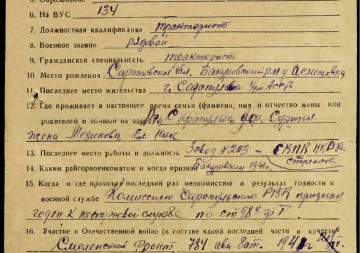 6. На ВУС 134
7. Должностная квалификация тракторист
8. Военное звание рядовой
9. Гражданская специальность тракторист
10. Место рождения Саратовская обл. Бакурский р-н д.
11. Последнее место жительства г. Сарапул Удм. АССР
12. Где проживает в настоящее время семья (фамилия, имя и отчество жены или
родителей и точный их адрес) г. Сарапул дор.
жена Мезикова Ел. Ник
13. Последнее место работы и должность Завод №203 —
стрелок
14. Каким райгорвоенкоматом и когда призван Бакурским 1941г.
15. Когда и где проходил последний раз медкомиссию и результат годности к
военной службе Комиссией Сарапульского РВК признан
годен к нестроевой службе по ст 98 гр I
16. Участие в Отечественной войне (в составе какой последней части в качестве
Смоленский фронт 784 авт. бат. 194